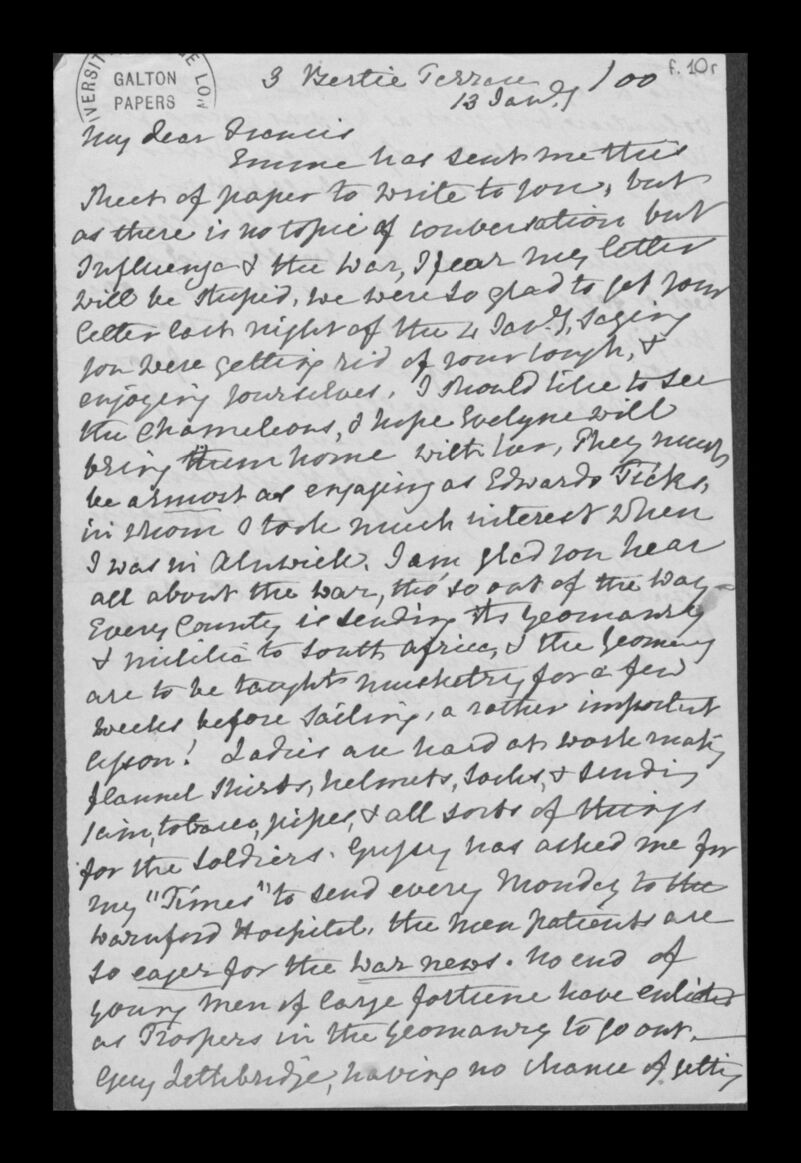 UNIVERSITY COLLEGE LON
GALTON
PAPERS
f. 10r
3 Bertie Terrace
13 Jany /00
My dear Francis
Emme has sent me this
sheet of paper to write to you, but
as there is no topic of conversation but
Influenza & the War, I fear my letter
will be stupid, we were so glad to get your
letter last night of the 4 Jany, saying
you were getting rid of your cough, &
enjoying yourselves. I should like to see
the Chameleons, I hope Evelyne will
bring them home with her, They must
be almost as engaging as Edwards Ticks,
in whom I took much interest when
I was in Alnwick. I am glad you hear
all about the war, tho' so out of the way -
Every County is sending its Yeomanry
& militia to South Africa, & the Yeomanry
are to be taught musketry for a few
weeks before sailing, a rather important
lesson! Ladies are hard at work making
flannel shirts, helmets, socks, & sending
tobacco, pipes, & all sorts of things
for the soldiers. Gypsy has asked me for
my "Times" to send every Monday to the
Warnford Hospital, the men patients are
so eager for the war news. no end of
young men of large fortune have enlisted
as Troopers in the Yeomanry to go out. —
Guy Lethbridge, having no chance of getting